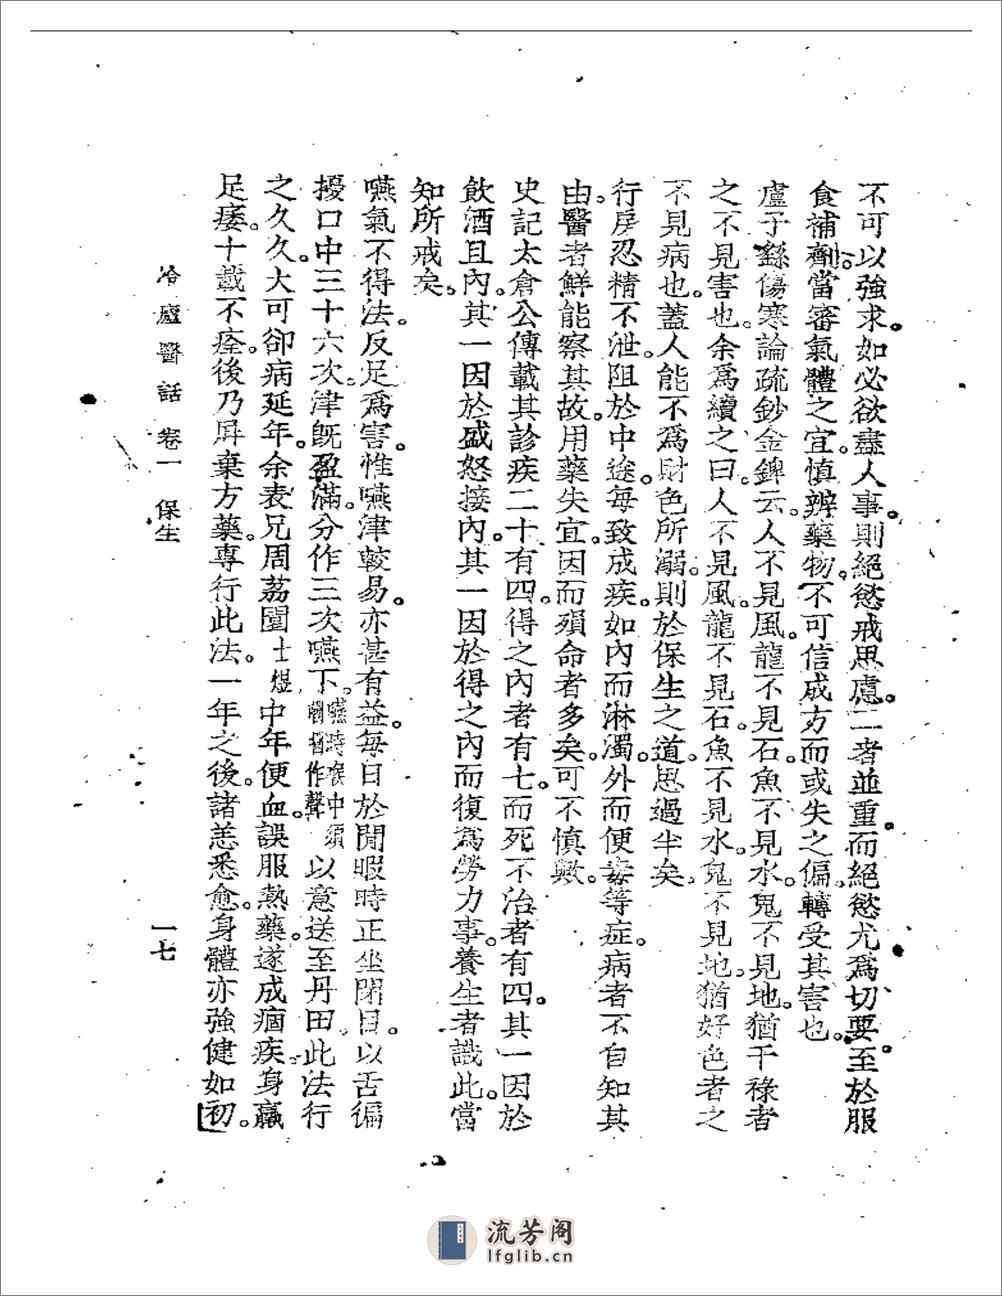 不可以強求。如必欲盡人事。則絕慾戒思慮。二者並重。而絕慾尤爲切要。至於服
食補劑。當審氣體之宜。愼辨藥物。不可信成方而或失之偏。轉受其害也。
盧子繇傷寒論疏鈔金錍云。人不見風。龍不見石。魚不見水。鬼不見地。猶干祿者
之不見害也。余爲續之曰。人不見風。龍不見石。魚不見水。鬼不見地。猶好色者之
不見病也。蓋人能不爲財色所溺。則於保生之道。思過半矣。
行房忍精不泄。阻於中途。每致成疾。如內而淋濁。外而便毒等症。病者不自知其
由。醫者鮮能察其故。用藥失宜。因而殞命者多矣。可不愼歟。
史記太倉公傳載其診疾二十有四。得之內者有七。而死不治者有四。其一因於
飲酒且內。其一因於盛怒接內。其一因於得之內而復爲勞力事。養生者識此。當
知所戒矣。
嚥氣不得法。反足爲害。惟嚥津較易。亦甚有益。每日於閒暇時正坐閉目。以舌徧
擾口中三十六次。津旣盈滿。分作三次嚥下。嚥時喉中須嘓嘓作聲以意送至丹田。此法行
之久久。大可卻病延年。余表兄周荔園士煜。中年便血。誤服熱藥。遂成痼疾。身羸
足痿。十載不痊。後乃屏棄方藥。專行此法。一年之後。諸恙悉愈。身體亦強健如初。
冷廬醫話 卷一 保生 一七
流芳阁
lfglib.cn